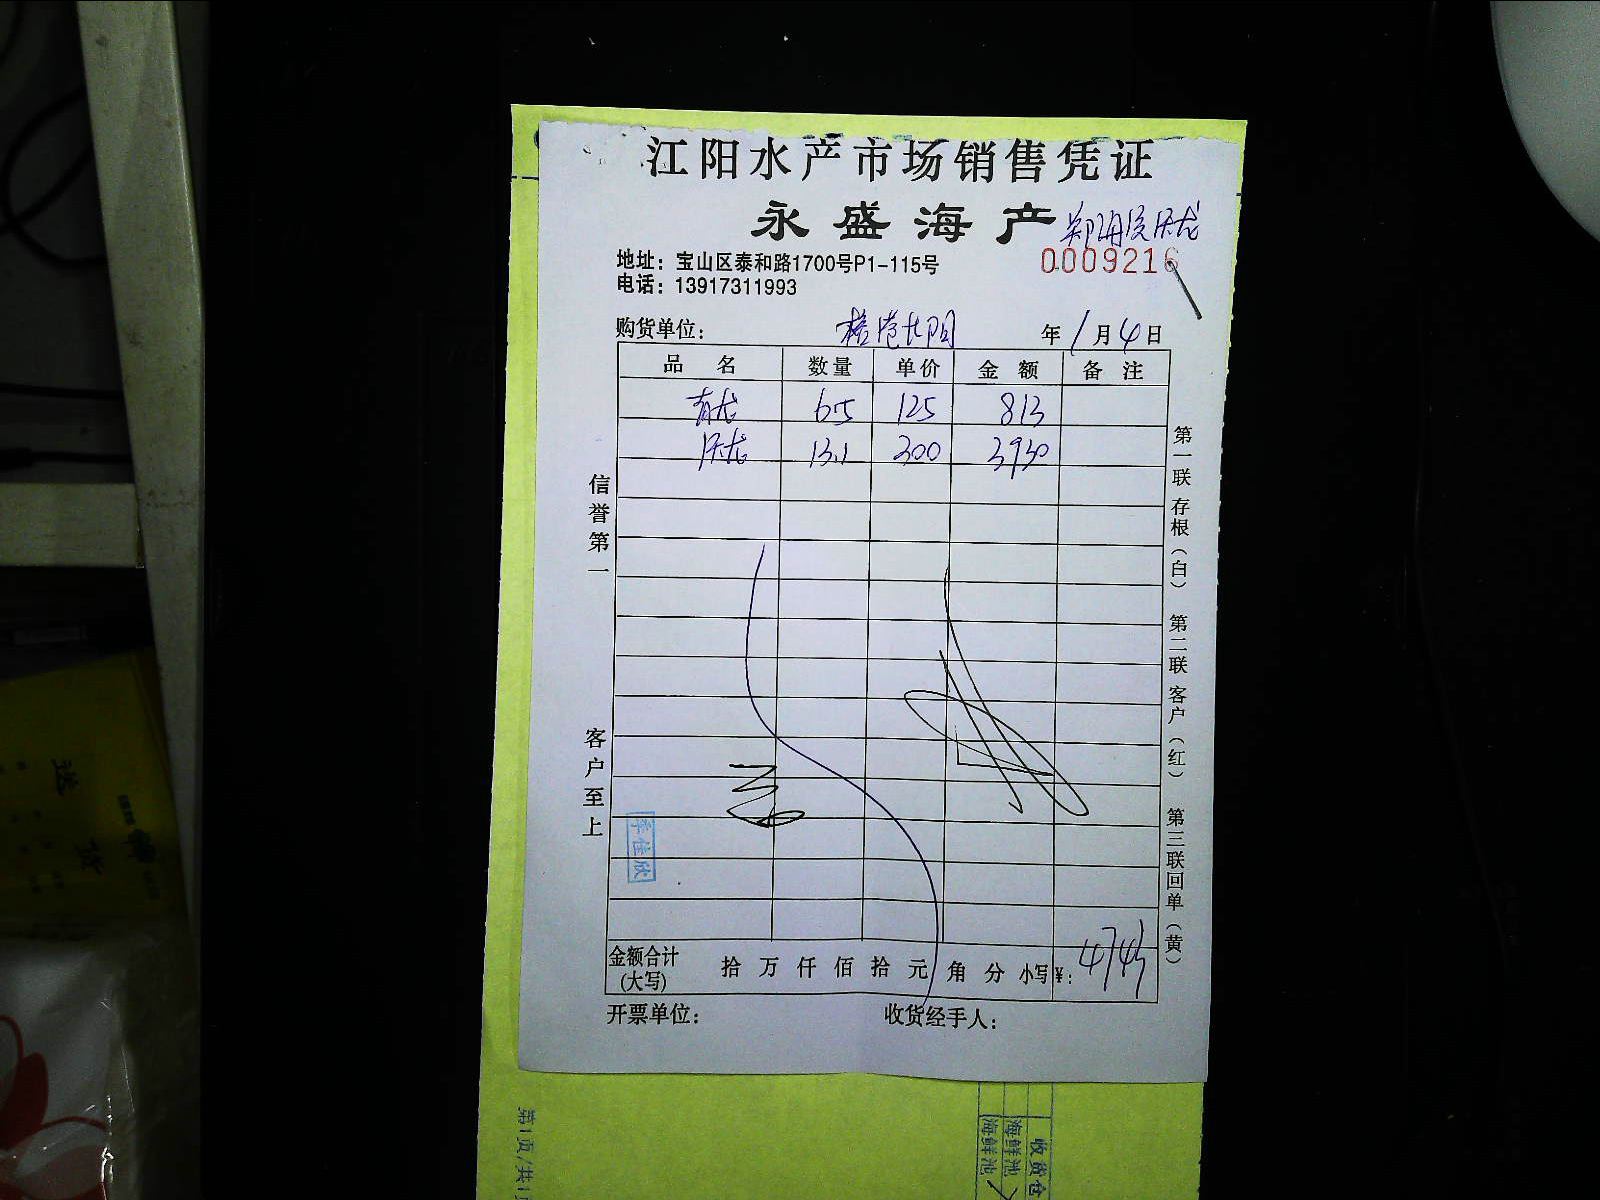 江阳水产市场销售凭证
永盛海产
0009216
地址：宝山区泰和路1700号P1-115号
电话：13917311993
购货单位： 年 1 月 4 日
品 名 数量 单价 金 额 备 注
青龙 6.5 125 813
13.1 300 3930
信誉第一
客户至上
李佳欣
第一联 存根（白） 第二联 客户（红） 第三联 回单（黄）
金额合计(大写) 拾 万 仟 佰 拾 元 角 分 小写¥： 4743
开票单位： 收货经手人：
第1页/共1
收货仓
海鲜池
海鲜池
送